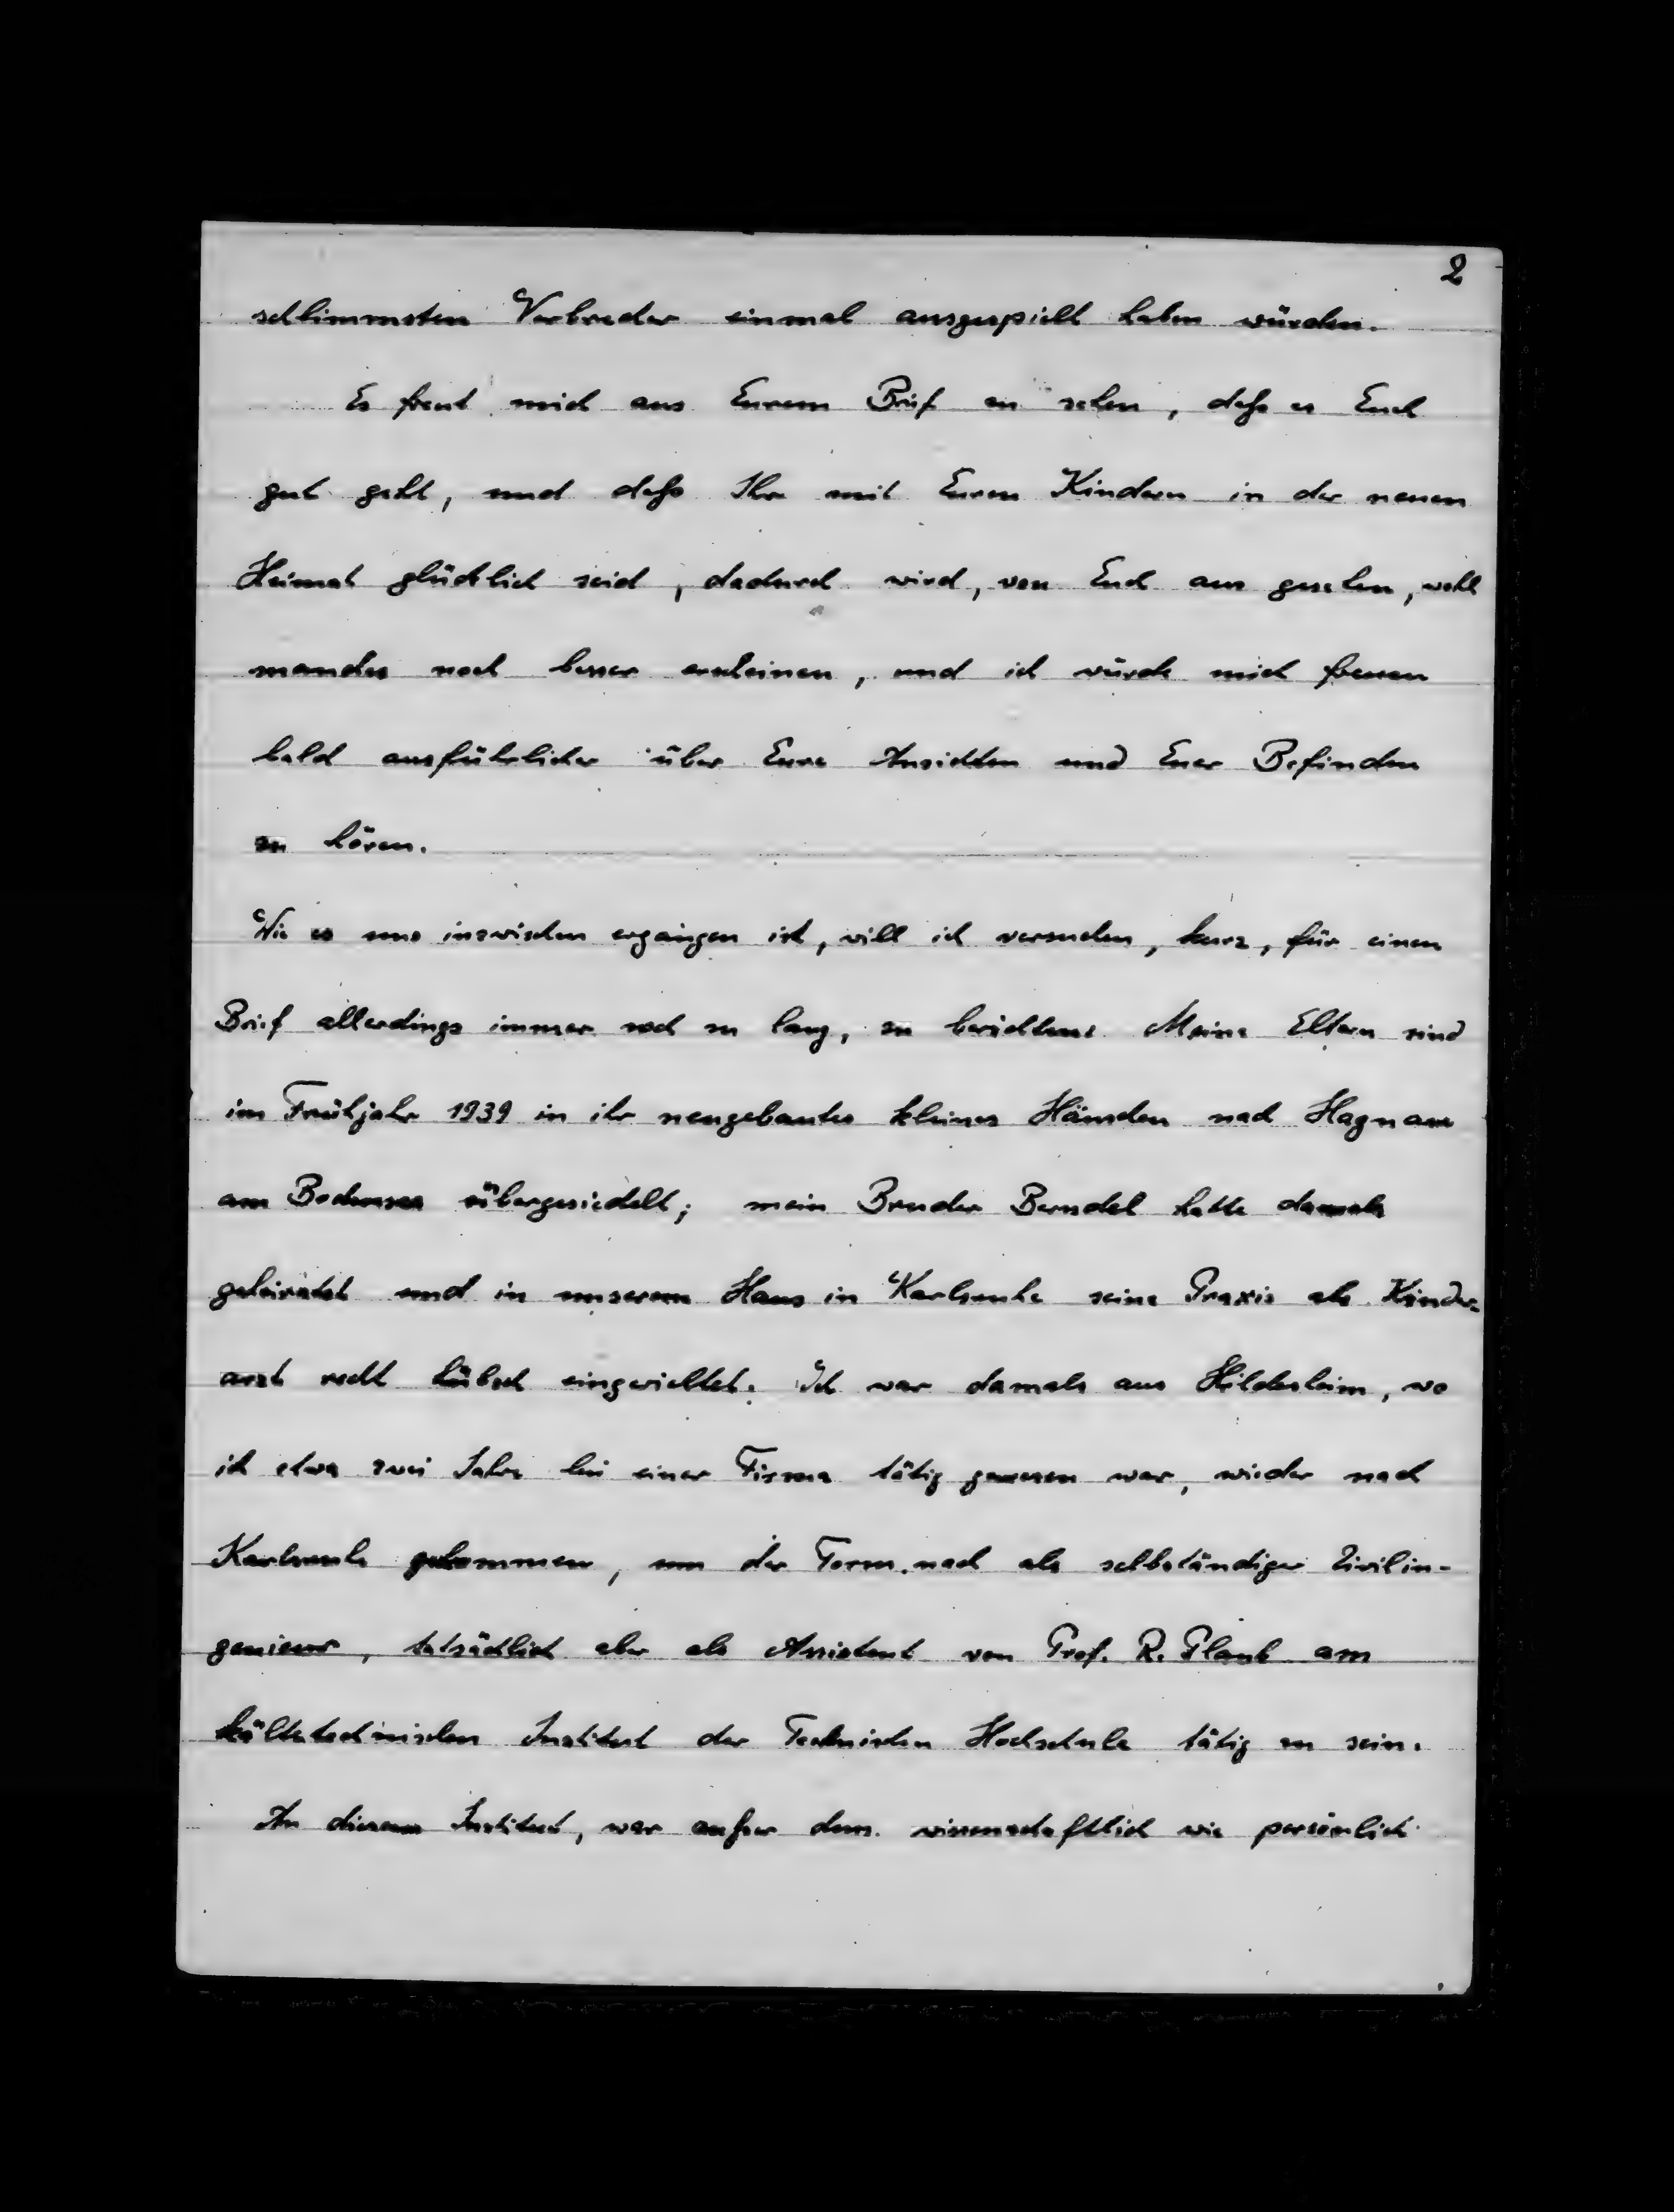 2
schlimmsten Verbrecher einmal ausgespielt haben würden.
Es freut mich aus Eurem Brief zu sehen, daß es Euch
gut geht, und daß Ihr mit Euren Kindern in der neuen
Heimat glücklich seid, dadurch wird, von Euch aus gesehen, wohl
manches noch besser erscheinen, und ich würde mich freuen
bald ausführlicher über Eure Ansichten und Euer Befinden
zu hören.
Wie es uns inzwischen ergangen ist, will ich versuchen, kurz, für einen
Brief allerdings immer noch zu lang, zu berichten: Meine Eltern sind
im Frühjahr 1939 in ihr neugebautes kleines Häuschen nach Hagnau
am Bodensee übergesiedelt; mein Bruder Berndel hatte damals
geheiratet und in unserem Haus in Karlsruhe seine Praxis als Kinder=
arzt recht hübsch eingerichtet. Ich war damals aus Hildesheim, wo
ich etwa zwei Jahre bei einer Firma tätig gewesen war, wieder nach
Karlsruhe gekommen, um der Form nach als selbständiger Zivilin-
genieur, tatsächlich aber als Assistent von Prof. R. Plank am
kältetechnischen Institut der Technischen Hochschule tätig zu sein.
An diesem Institut, war außer dem wissenschaftlich wie persönlich